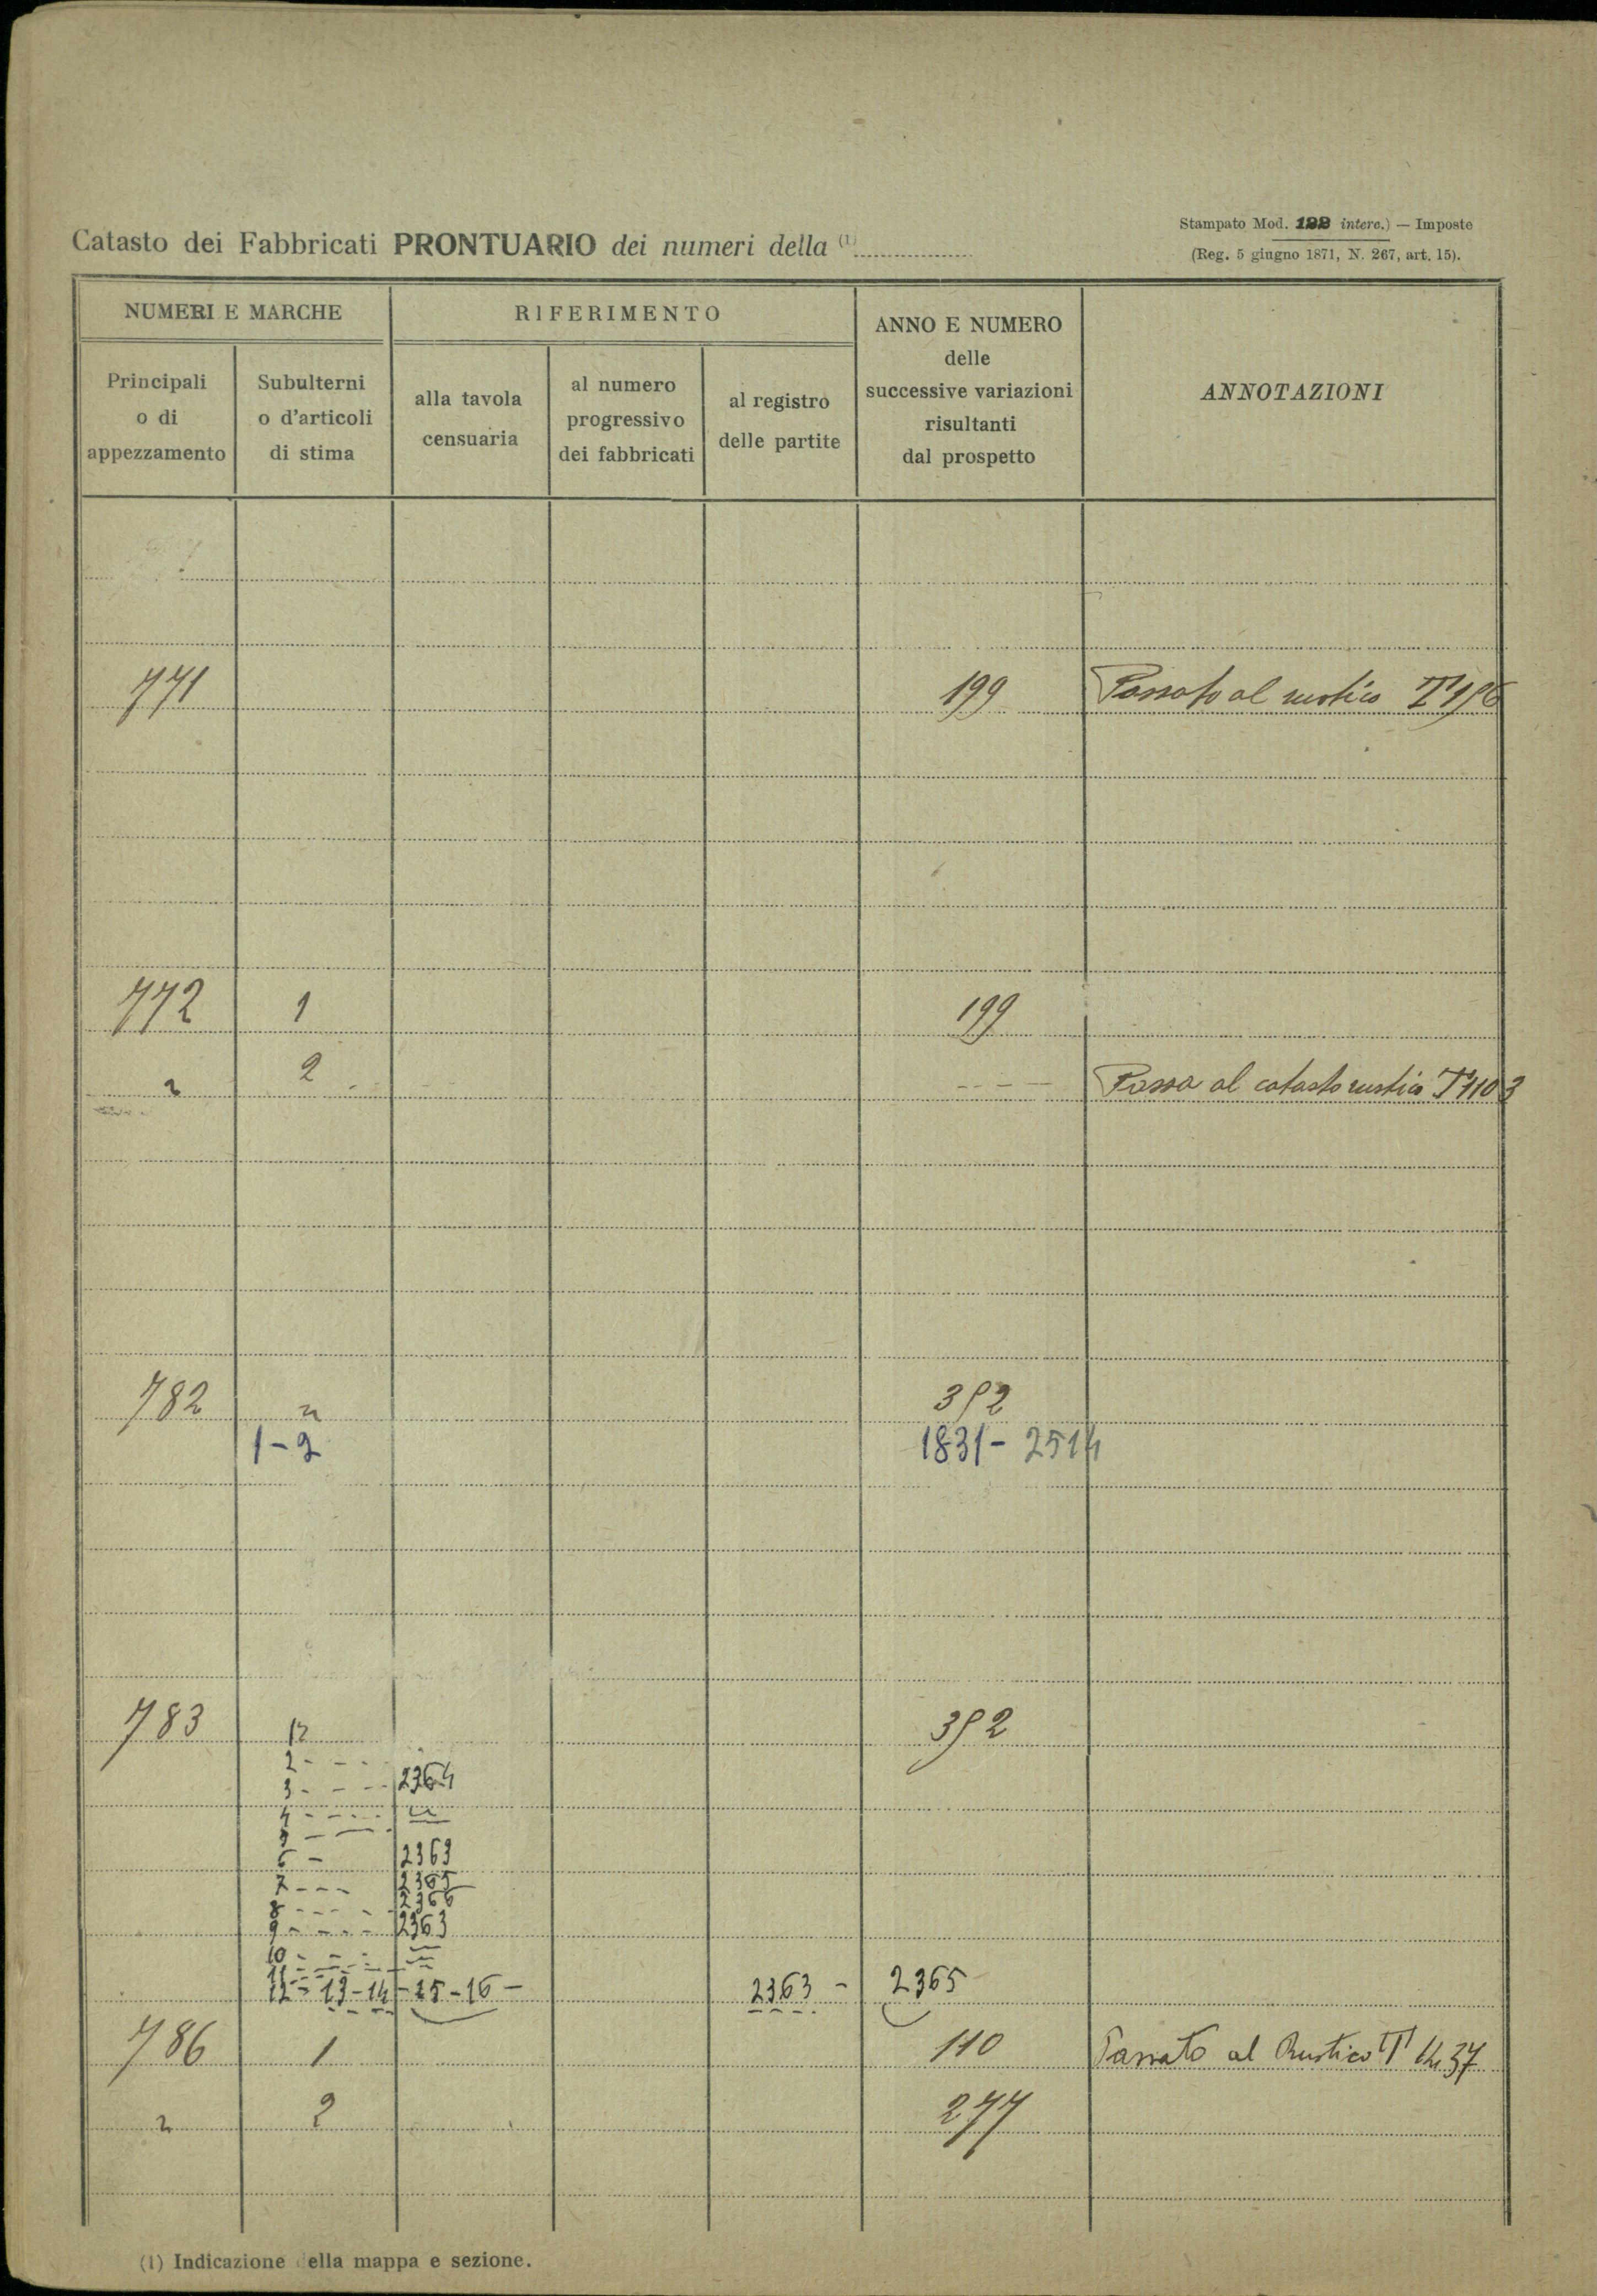 Catasto dei Fabbricati PRONTUARIO dei numeri della (1)
Stampato Mod. 122 interc.) — Imposte
(Reg. 5 giugno 1871, N. 267, art. 15).
NUMERI E MARCHE
RIFERIMENTO
ANNO E NUMERO
delle
successive variazioni
risultanti
dal prospetto
ANNOTAZIONI
Principali
o di
appezzamento
Subulterni
o d'articoli
di stima
alla tavola
censuaria
al numero
progressivo
dei fabbricati
al registro
delle partite
771 199 Passato al rustico
772 1 199
" 2 Passa al catasto rustico T 1103
782 " 392
1-2 1831 - 2514
783 392
2 - - -
3 - - - 2364
4 - - - "
5 - - -
6 - 2363
7 - - - 2365
8 - - - 2366
9 - - - 2363
10 - - - "
11 - - - "
12 - 13 - 14 - 15 - 16 - 2363 - 2365
786 1 110 Passato al Rustico T
" 2 277
(1) Indicazione della mappa e sezione.